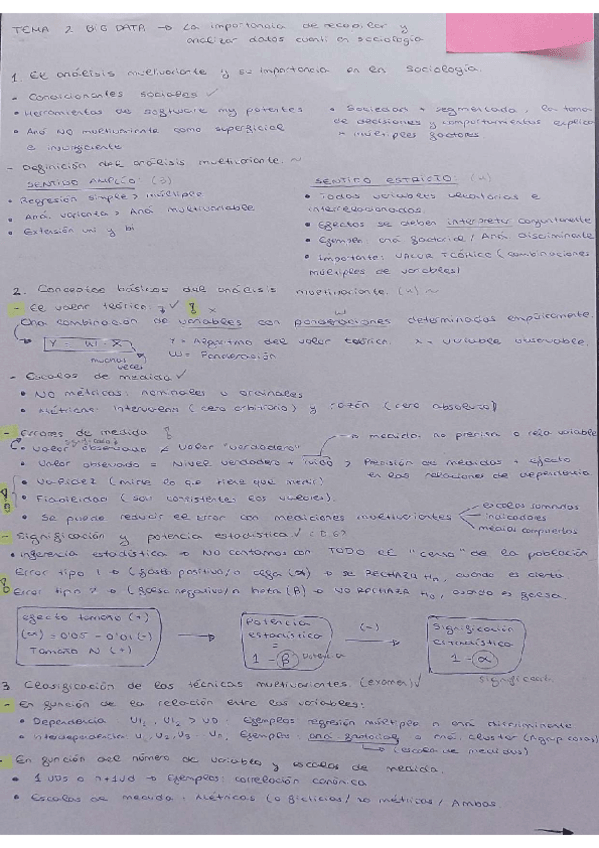 TEMA 2. BIG DATA → La importancia de recopilar y
analizar datos cuanti en sociología
1. El análisis multivariante y su importancia en en sociología.
- Condicionantes sociales ✓
• Herramientas de software muy potentes
• Aná NO multivariante como superficial
e insuficiente
• Sociedad + segmentada, la toma
de decisiones y comportamientos explica
x múltiples factores
- Definición del análisis multivariante. ~
SENTIDO AMPLIO: (3)
• Regresión simple > múltiple
• Aná. varianza > Aná multivariable
• Extensión uni y bi
SENTIDO ESTRICTO: (4)
• Todas variables aleatorias e
interrelacionadas.
• Efectos se deben interpretar conjuntamente
• Ejemplo: aná factorial / Aná Discriminante
• Importante: VALOR TEÓRICO (combinaciones
múltiples de variables)
2. Conceptos básicos del análisis multivariante. (4) ~
- El valor teórico: ✓
Una combinación de variables con ponderaciones determinadas empíricamente.
W
Y = W · X
muchas veces
Y = Algoritmo del valor teórico. X = variable observable.
W = Ponderación
- Escalas de medida ✓
• NO métricas: nominales u ordinales
• Métricas: intervalos (cero arbitrario) y razón (cero absoluto)
- Errores de medida
valor observado ≠ valor "verdadero"
→ medida no precisa o otra variable
• Valor observado = Nivel verdadero + ruido > Precisión de medidas + efecto
en las relaciones de dependencia.
• Validez (mide lo que tiene que medir)
• Fiabilidad (son consistentes los valores).
• Se puede reducir el error con mediciones multivariantes
escalas sumadas
indicadores
medias compuestas
- Significación y potencia estadística ✓
• inferencia estadística → NO contamos con TODO el "censo" de la población
Error tipo 1 → (falso positivo/α) → se RECHAZA H₀, cuando es cierta.
Error tipo 2 → (falso negativo/β) → NO RECHAZA H₀, cuando es falsa.
efecto tamaño (+)
(α) = 0'05 - 0'01 (-)
Tamaño N (+)
→
Potencia
estadística
=
1 - β
Potencia
(-)
→
Significación
estadística
1 - α
3. Clasificación de las técnicas multivariantes. (examen) ✓
- En función de la relación entre las variables:
• Dependencia VI₁, VI₂ > VD. Ejemplos regresión múltiple o aná discriminante
• Interdependencia V₁, V₂, V₃... Ejemplos: aná factorial o aná. cluster (agrupa casos)
- En función del número de variables y escalas de medida.
• 1 VDs o n+1VD → Ejemplos: correlación canónica
• Escalas de medida: Métricas (o ficticias) / no métricas / Ambas